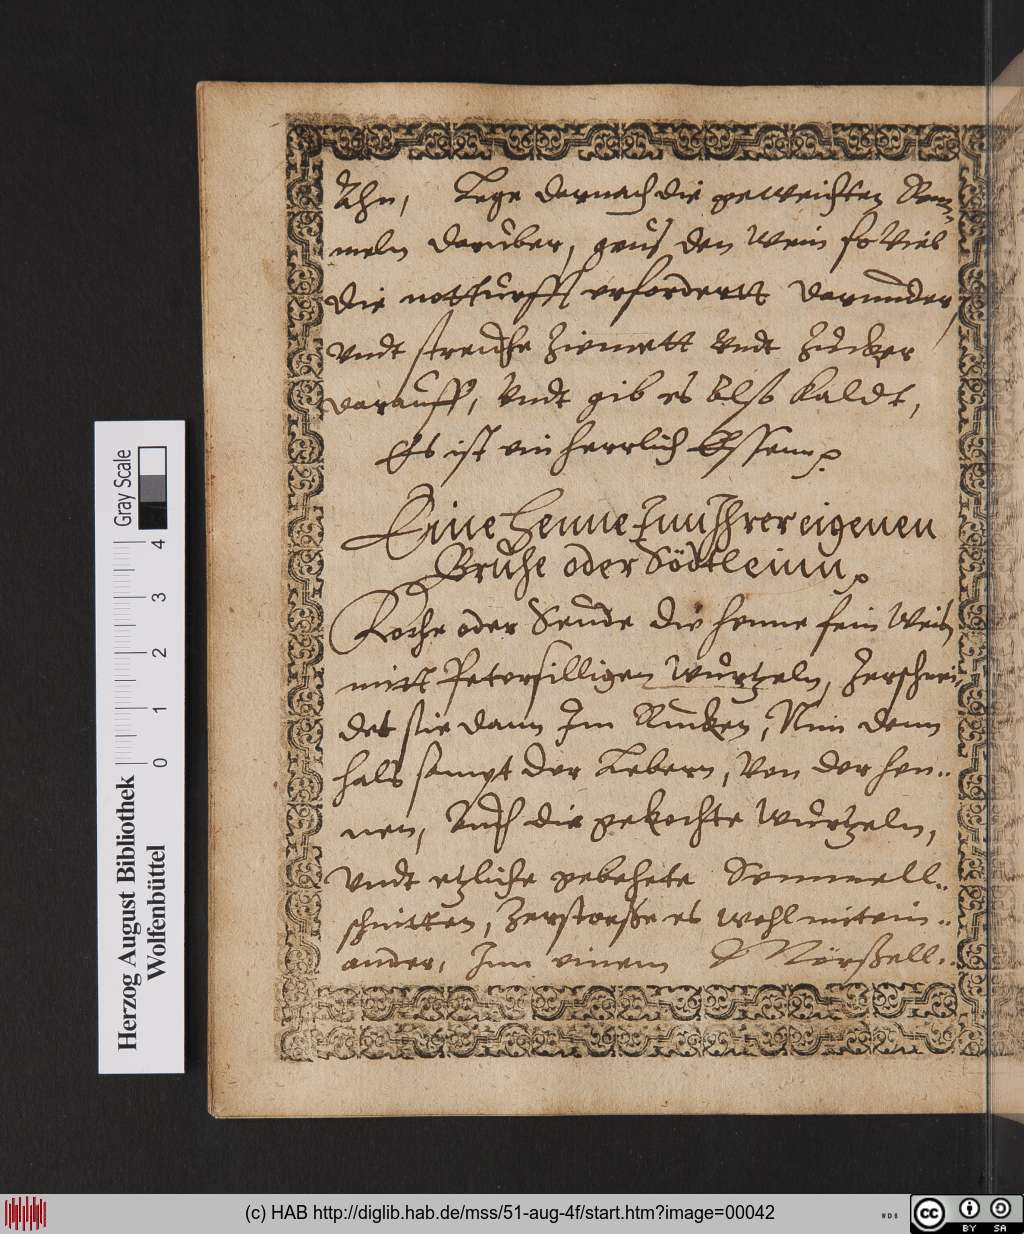 Ahn, Lege darnach die geweichten Sem-
meln daruber, geus den Wein so Viel
die nottürfft erfordertt darunder,
Vndt streuche Zimmett Vndt Zucker
darauff, Vndt gib es Also kaldt,
Es ist ein herrlich Essenn.
Eine Henne Inn Ihrer eigenen
Bruhe oder Södtleinn.
Koche oder Seude die henne fein Weis
mitt Petersilligen Wurtzeln, Zerschnei-
det sie dann Im Rucken, Nim denn
hals sampt der Lebern, Von der hen-
nen, Auch die gekochte Wurtzeln,
Vndt etzliche gebehete Semmell-
schnitten, Zerstoeße es wohl mitein-
ander, Inn einem Mörßell-
Gray Scale
4
3
2
1
0
Herzog August Bibliothek
Wolfenbüttel
(c) HAB http://diglib.hab.de/mss/51-aug-4f/start.htm?image=00042
WDB
cc BY SA